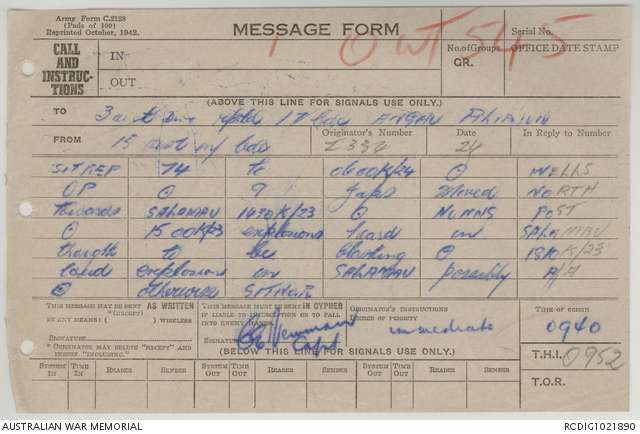 Army Form C.2128
(Pads of 100)
Reprinted October, 1942.
MESSAGE FORM
Serial No.
CALL AND INSTRUC-TIONS
IN
OUT
O WT 545
No. of Groups
GR.
OFFICE DATE STAMP
(ABOVE THIS LINE FOR SIGNALS USE ONLY.)
TO 3 aust div 17 bde ANGAU
FROM 15 aust inf bde
Originator's Number
I 332
Date
24
In Reply to Number
SITREP 74 to 0600K/24 ⊙ WELLS
OP ⊙ 9 Japs moved NORTH
towards SALAMAU 1430K/23 ⊙ NUNNS POST
⊙ 1500K/23 explosions heard in SALAMAU
thought to be blasting ⊙ 1810K/23
loud explosion in SALAMAU possibly
⊙ otherwise SITNOR
THIS MESSAGE MAY BE SENT AS WRITTEN
(EXCEPT)
BY ANY MEANS ( ) WIRELESS
SIGNATURE
* ORIGINATOR MAY DELETE "EXCEPT" AND INSERT "INCLUDING."
THIS MESSAGE MUST BE SENT IN CYPHER
IF LIABLE TO INTERCEPTION OR TO FALL INTO ENEMY HANDS.
SIGNATURE Newman Capt
ORIGINATOR'S INSTRUCTIONS
DEGREE OF PRIORITY
immediate
TIME OF ORIGIN
0940
T.H.I. 0952
T.O.R.
(BELOW THIS LINE FOR SIGNALS USE ONLY.)
SYSTEM IN TIME IN READER SENDER SYSTEM OUT TIME OUT READER SENDER SYSTEM OUT TIME OUT READER SENDER
AUSTRALIAN WAR MEMORIAL
RCDIG1021890